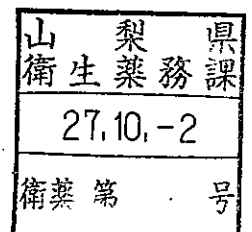 山梨県
衛生薬務課
27.10.-2
衛薬第 . 号